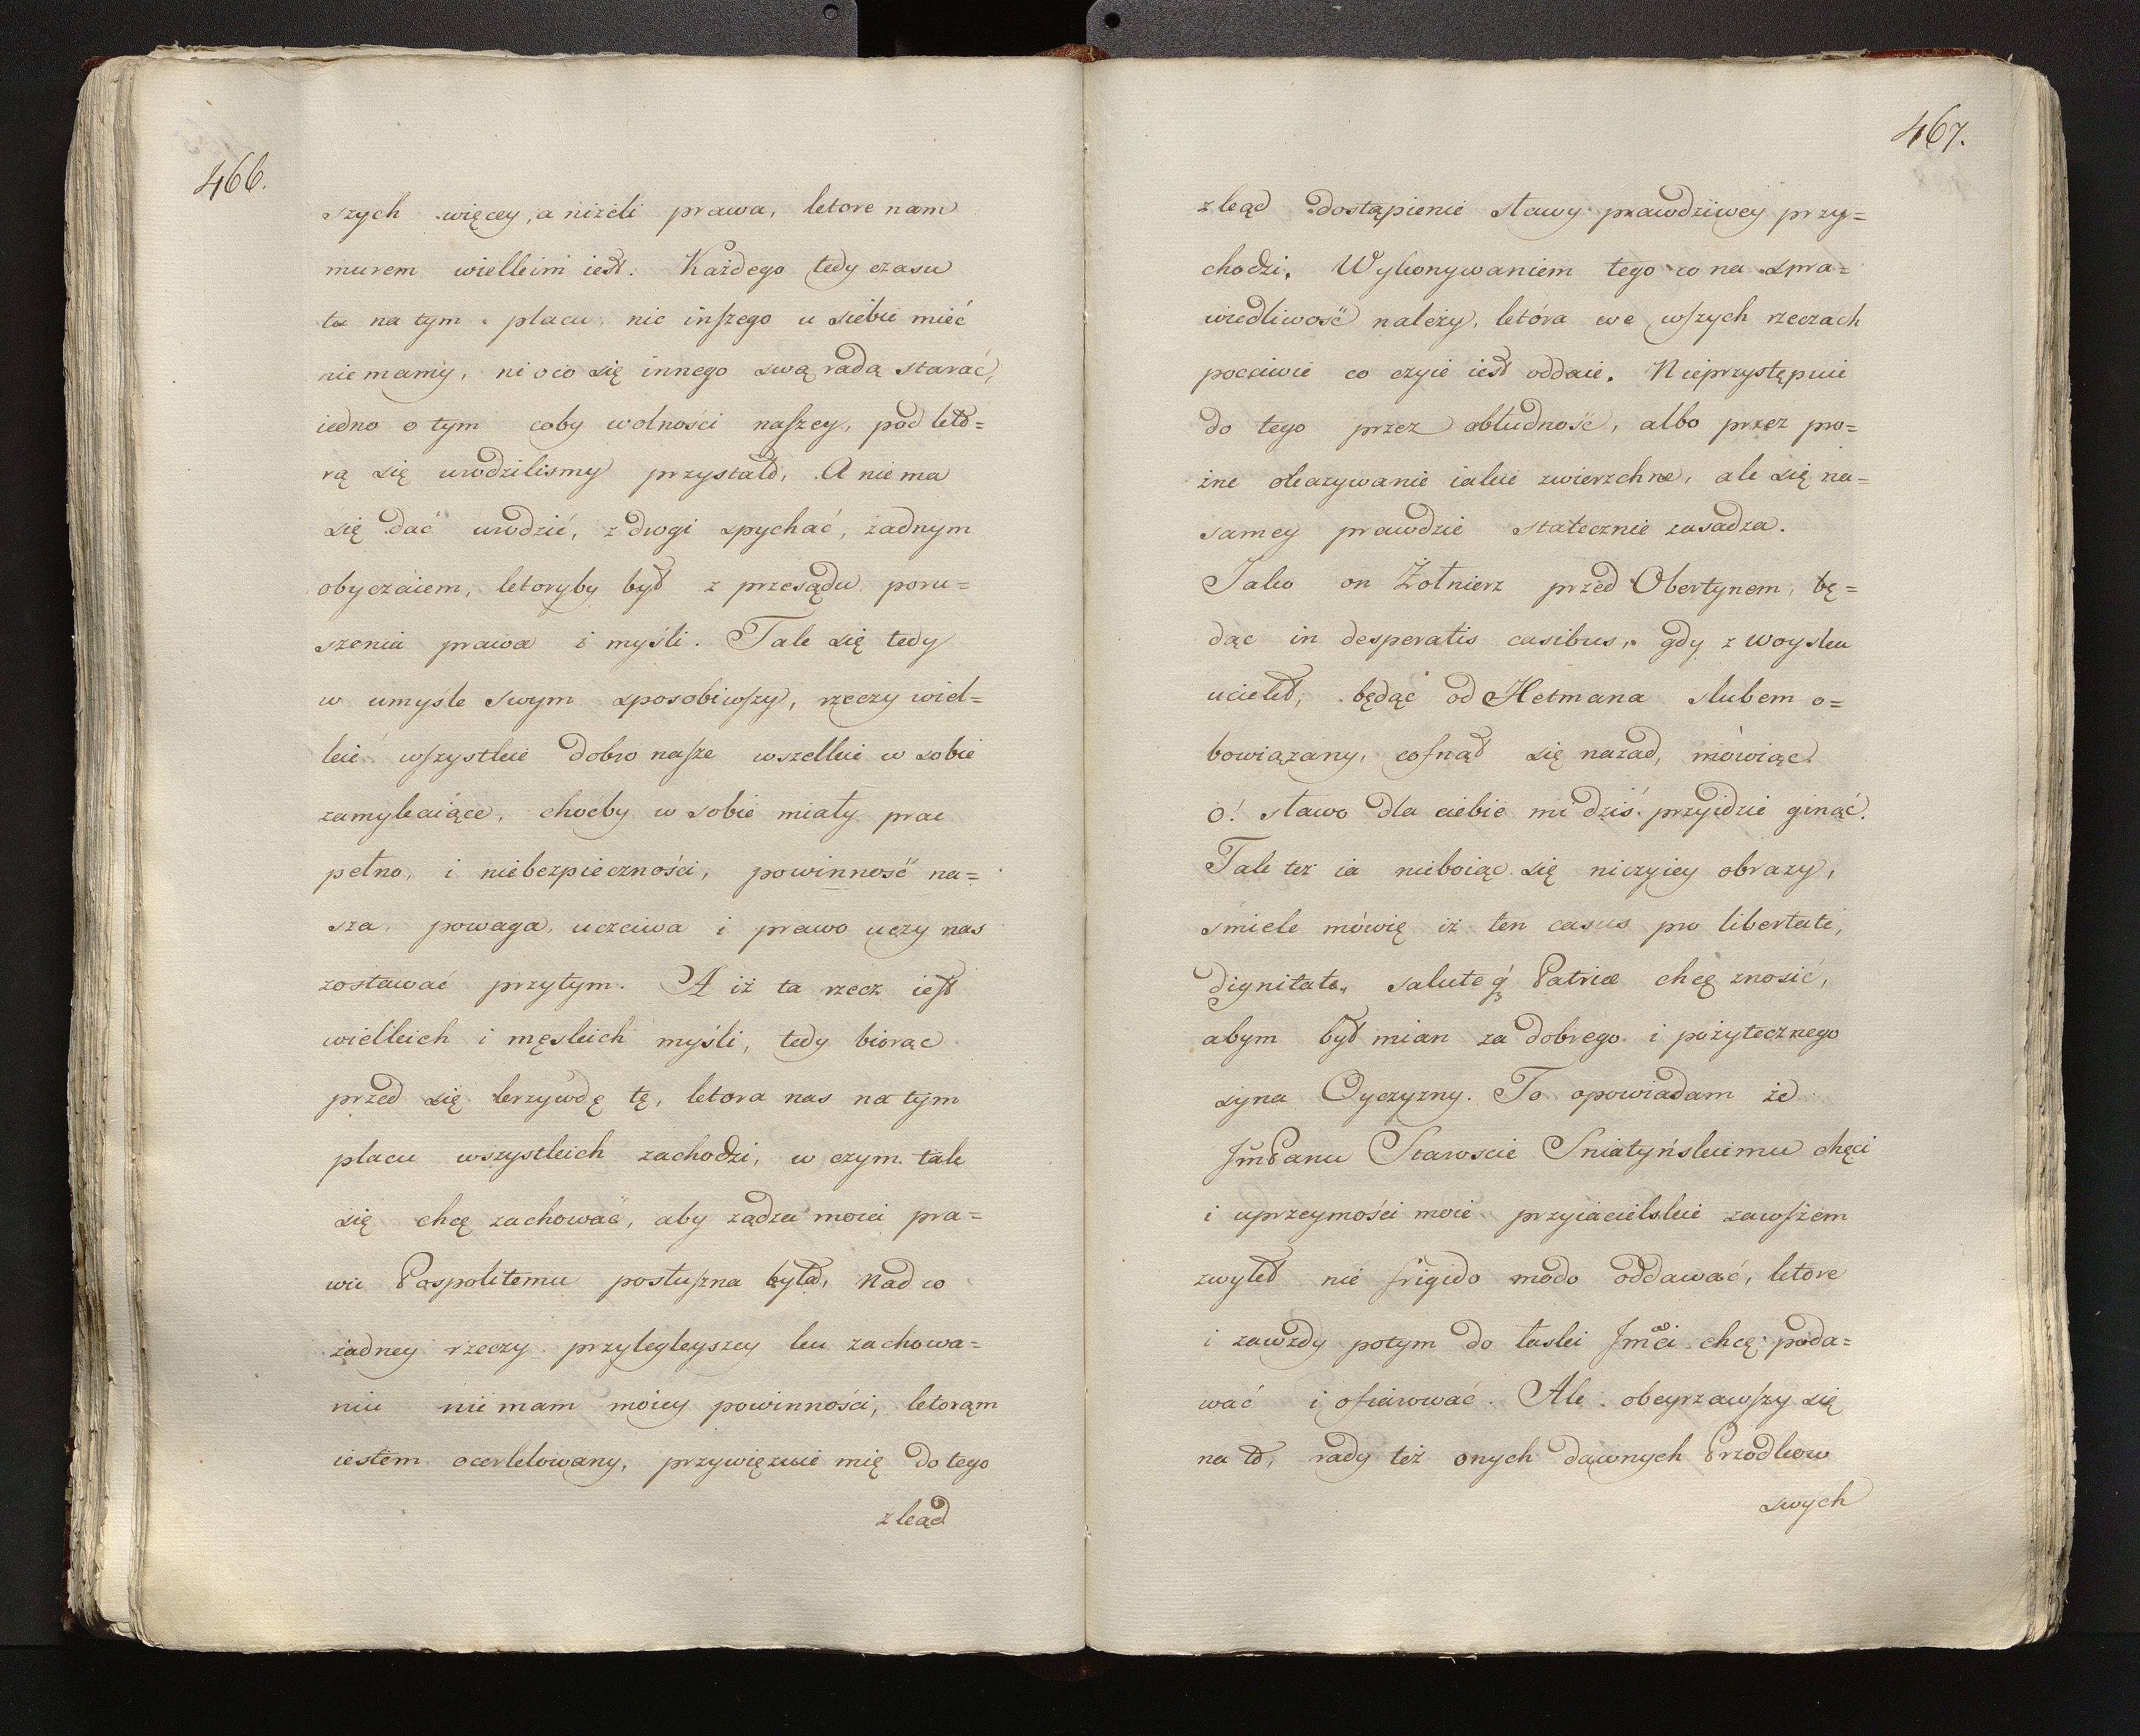 466.
szych więcey, a niżeli prawa, ktore nam
murem wielkim iest. Każdego tedy czasu
tu na tym placu, nic inszego u siebie mieć
nie mamy, ni ocio się innego swą radą starać,
iedno o tym coby wolności naszey, pod kto=
rą się urodzilismy przystało, A nie ma
się dać uwodzić, z drogi spychać, żadnym
obyczaiem, ktoryby był z przesądu poru=
szenia prawa i myśli. Tak się tedy
w umyśle swym sposobiwszy, rzeczy wiel=
kie wszystkie dobro nasze wszelkie w sobie
zamykaiące, choćby w sobie miały prac
pełno, i niebezpieczności, powinność na=
sza, powaga, uczciwa i prawo uczy nas
zostawać przytym. A iż ta rzecz iest
wielkich i męskich myśli, tedy biorąc
przed się krzywdę tę, ktora nas na tym
placu wszystkich zachodzi, w czym tak
się chcę zachować, aby żądza moia pra=
wu Pospolitemu posłuszna była, Nad co
żadney rzeczy przylegleyszey ku zachowa=
niu nie mam moiey powinności, ktorąm
iestem ocerklowany, przywięzuie mię do tego
zkąd
467.
zkąd dostąpienie sławy prawdziwey przy=
chodzi. Wykonywaniem tego co na spra=
wiedliwość należy, która we wszych rzeczach
poćciwie co czyie iest oddaie. Nieprzystępuie
do tego przez obłudność, albo przez pro=
żne okazywanie iakie zwierzchne, ale się na=
samey prawdzie statecznie zasadza.
Jako on Żołnierz przed Obertynem, bę=
dąc in desperatis casibus, gdy z woyska
uciekł, będąc od Hetmana slubem o=
bowiązany, cofnął się nazad, mówiąc
o! sławo dla ciebie mi dziś przyidzie ginąć.
Tak też ia nieboiąc się niczyiey obrazy,
śmiele mówię iż ten casus pro libertate,
dignitate, saluteq́ Patriæ chcę znosić,
abym był mian za dobrego i pożytecznego
syna Oyczyzny. To opowiadam że
JmPanu Staroscie Sniatyńskiemu chęci
i uprzeymości moie przyiacielskie zawszem
zwykł nie frigido modo oddawać, ktore
i zawzdy potym do łaski Jmci chcę poda=
wać i ofiarować. Ale obeyrzawszy się
na to, rady też onych dawnych Przodkow
swych